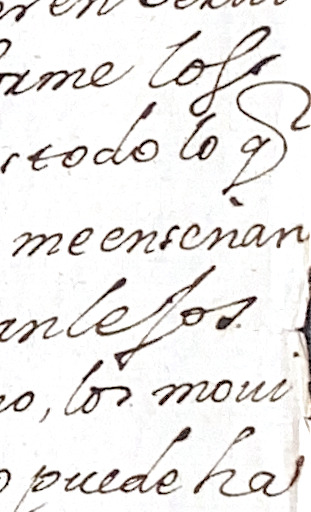 rme los
s todo lo q
me enseñan
an lejos
no, los moui
o puede ha